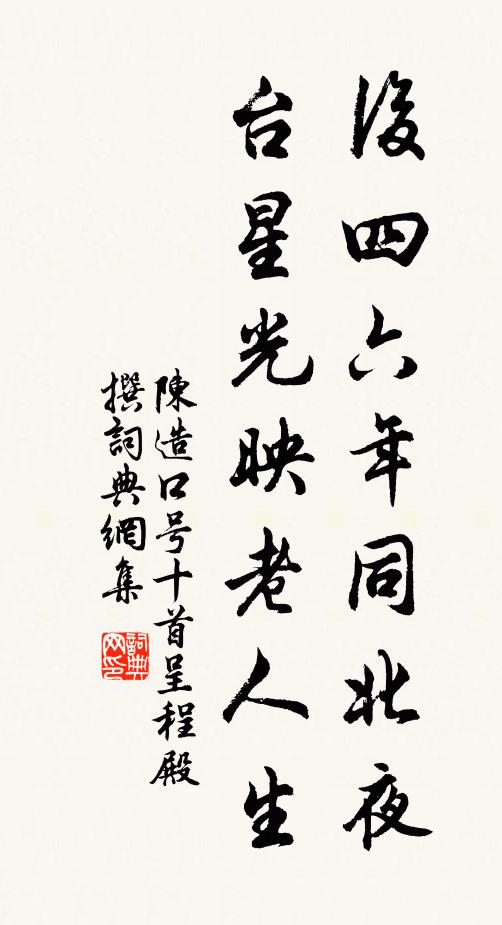 後四六年同此夜
台星光映老人生
陳造口号十首呈程殿
撰詞典網集
詞典网印